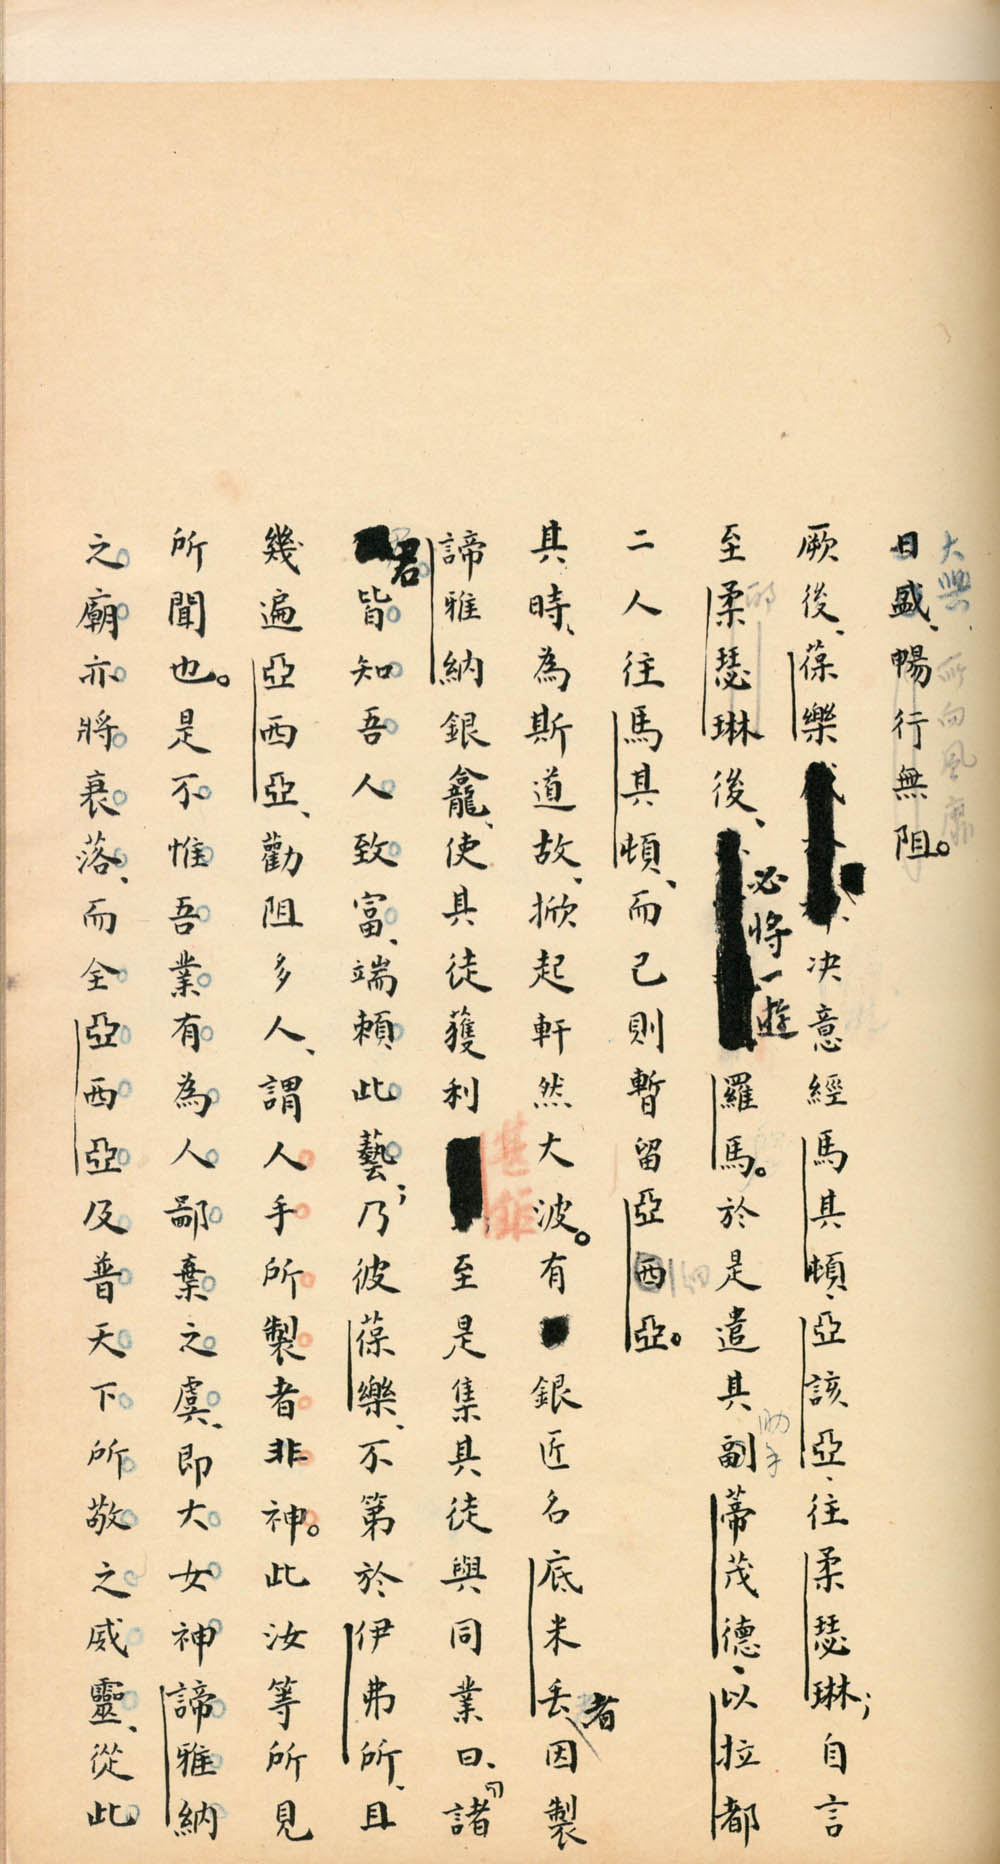 大興 所向風靡
日盛、暢行無阻。
厥後、葆樂決意經馬其頓、亞該亞、往柔瑟琳；自言
至柔瑟琳後、必將一遊羅馬。於是遣其副蒂茂德、以拉都
助手
二人往馬其頓、而己則暫留亞西亞。
其時、為斯道故、掀起軒然大波。有銀匠名底米丢者、因製
諦雅納銀龕、使其徒獲利甚鉅至是集其徒與同業曰、諸
君皆知吾人致富、端賴此藝；乃彼葆樂、不第於伊弗所、且
幾遍亞西亞、勸阻多人、謂人手所製者非神。此汝等所見
所聞也。是不惟吾業有為人鄙棄之虞、即大女神諦雅納
之廟亦將衰落、而全亞西亞及普天下所敬之威靈、從此